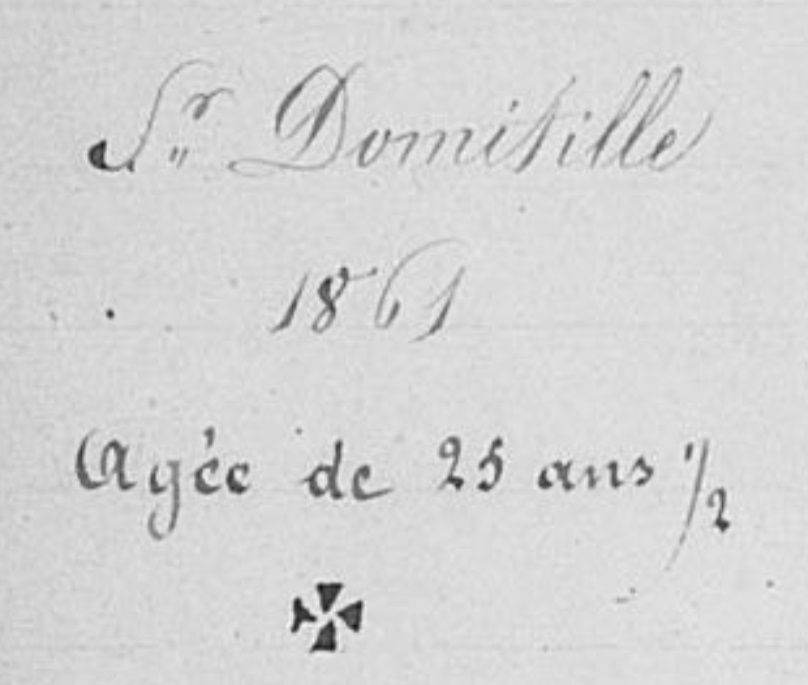 Sr Domitille
1861
Agée de 25 ans 1/2